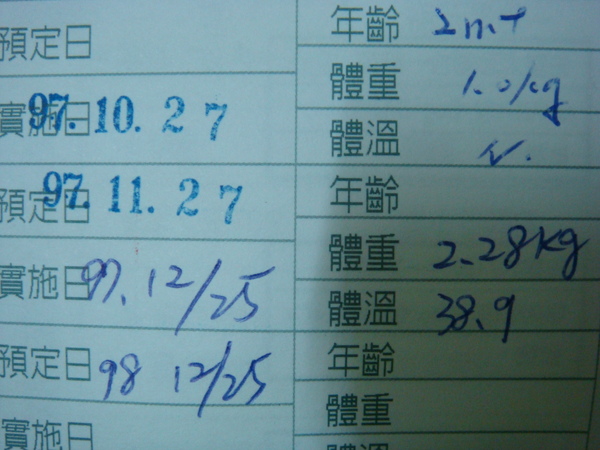 預定日
年齡 2m.t
體重 1.0kg
實施日 97.10.27
體溫 N.
預定日 97.11.27
年齡
體重 2.28kg
實施日 97.12/25
體溫 38.9
預定日 98 12/25
年齡
體重
實施日
體溫